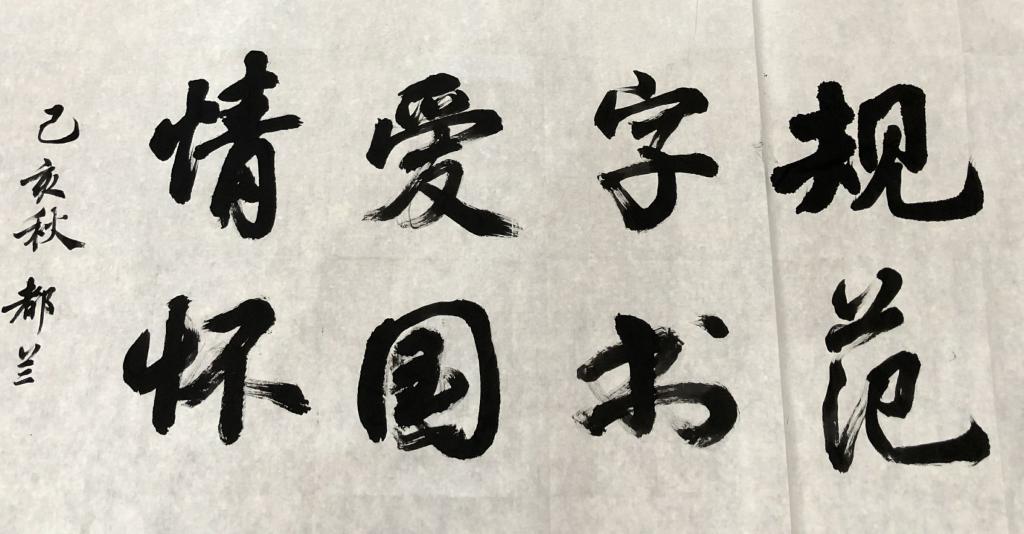 规范
字书
爱国
情怀
己亥秋 都兰